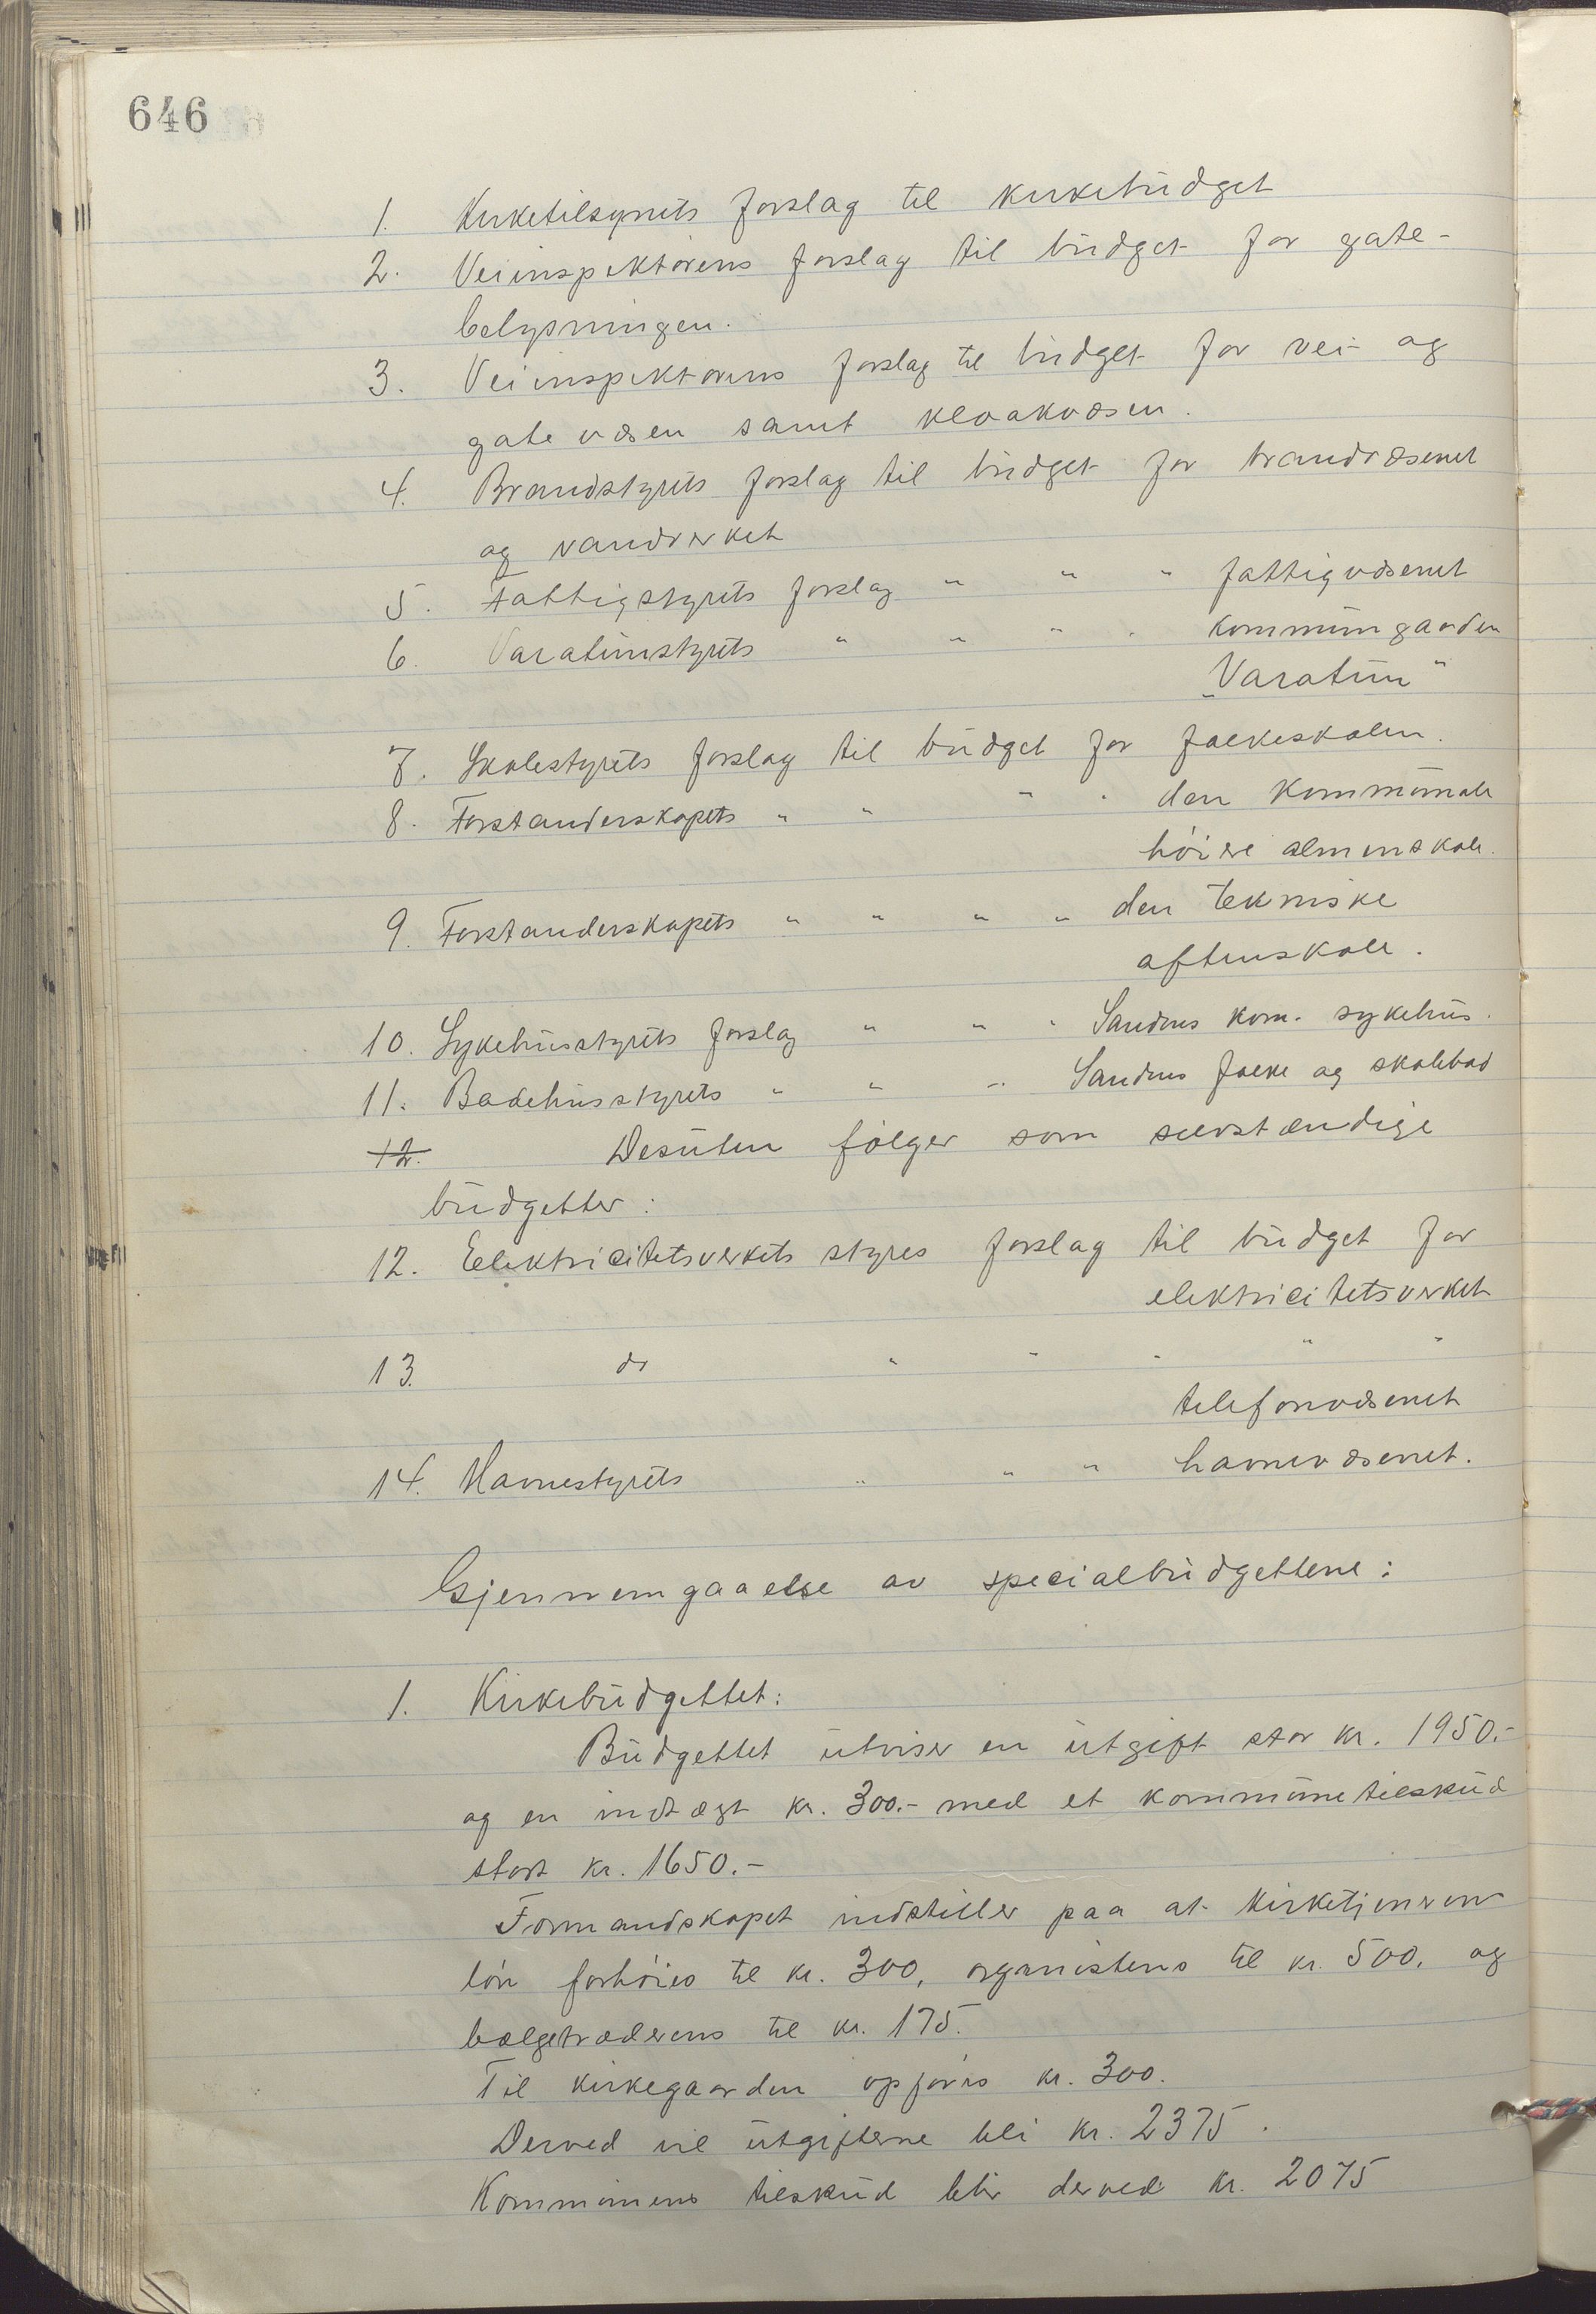 646
1. Kirketilsynets forslag til kirkebudget
2. Veiinspektørens forslag til budget for gate-
belysningen.
3. Veiinspektørens forslag til budget for vei- og
gatevæsen samt kloakvæsen.
4. Brandstyrets forslag til budget for brandvæsenet
og vandverket
5. Fattigstyrets forslag " " " fattigvæsenet
6. Varatunstyrets " " " " kommungaarden
"Varatun"
7. Skolestyrets forslag til budget for folkeskolen.
8. Forstanderskapets " " " " den kommunale
høiere almenskole.
9. Forstanderskapets " " " " den tekniske
aftenskole.
10. Sykehusstyrets forslag " " " Sandnes kom. sykehus.
11. Badehusstyrets " " " Sandnes folke og skolebad
12. Desuten følger som selvstændige
budgetter:
12. Elektricitetsverkets styres forslag til budget for
elektricitetsverket
13. do " " " " "
telefonvæsenet
14. Havnestyrets " " " havnevæsenet.
Gjennemgaaelse av specialbudgettene:
1. Kirkebudgettet:
Budgettet utviser en utgift stor kr. 1950.-
og en indtægt kr. 300.- med et kommunetilskud
stort kr. 1650.-
Formandskapet indstiller paa at kirketjenerens
løn forhøies til kr. 300, organistens til kr. 500, og
bælgetræderens til kr. 175.
Til kirkegaarden opføres kr. 300.
Derved vil utgifterne bli kr. 2375.
Kommunens tilskud blir derved kr. 2075